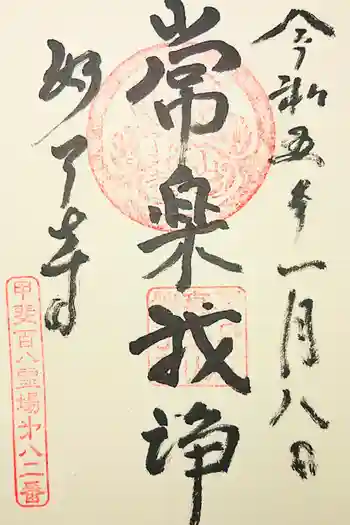 令和五年一月八日
常楽我浄
妙了寺
甲斐百八霊場第八二番